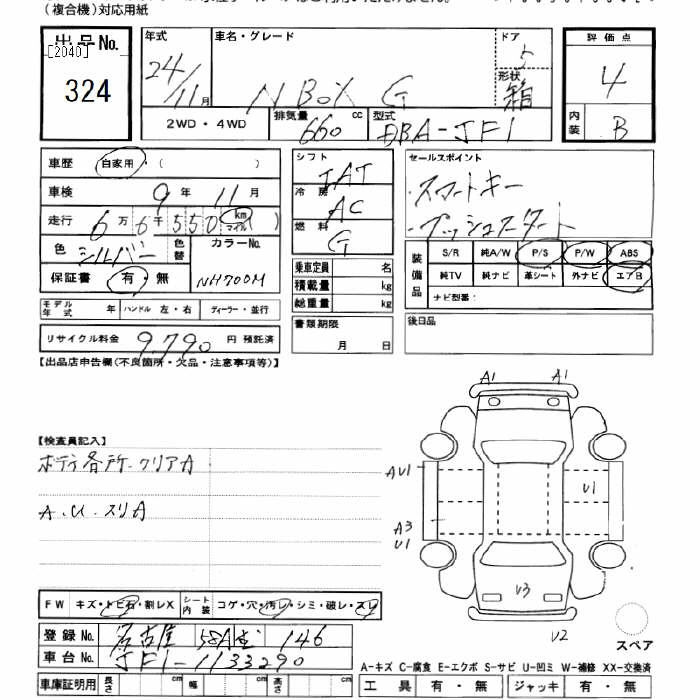 (複合機)対応用紙
出品No.
[2040]
324
年式
24/11月
車名・グレード
N BOX G
ドア
5
形状
箱
評価点
4
内装
B
2WD・4WD
排気量
660 cc
型式
DBA-JF1
車歴 自家用・( )
車検 9年 11月
走行 6万6千550 km マイル ( )
色 シルバー
色替
カラーNo.
NH700M
保証書 有・無
シフト
IAT
冷房
AC
燃料
G
乗車定員 名
積載量 kg
総重量 kg
セールスポイント
・スマートキー
・プッシュスタート
装備品
S/R 純A/W P/S P/W ABS
純TV 純ナビ 革シート 外ナビ エアB
ナビ型番:
モデル年式 年 ハンドル 左・右 ディーラー・並行
リサイクル料金 9,790円 預託済
書類期限
月 日
後日品
【出品店申告欄(不良箇所・欠品・注意事項等)】
【検査員記入】
ボデー各所-クリアA
A.U.スリA
A1 A1
AU1
U1
A3
U1
U3
U2
スペア
FW キズ・トビ石・割レX シート内装 コゲ・穴・汚レ・シミ・破レ・スレ
登録No. 名古屋 58A 146
車台No. JF1-1133290
車庫証明用 長さ cm 幅 cm 高さ cm
A-キズ C-腐食 E-エクボ S-サビ U-凹ミ W-補修 XX-交換済
工具 有・無 ジャッキ 有・無